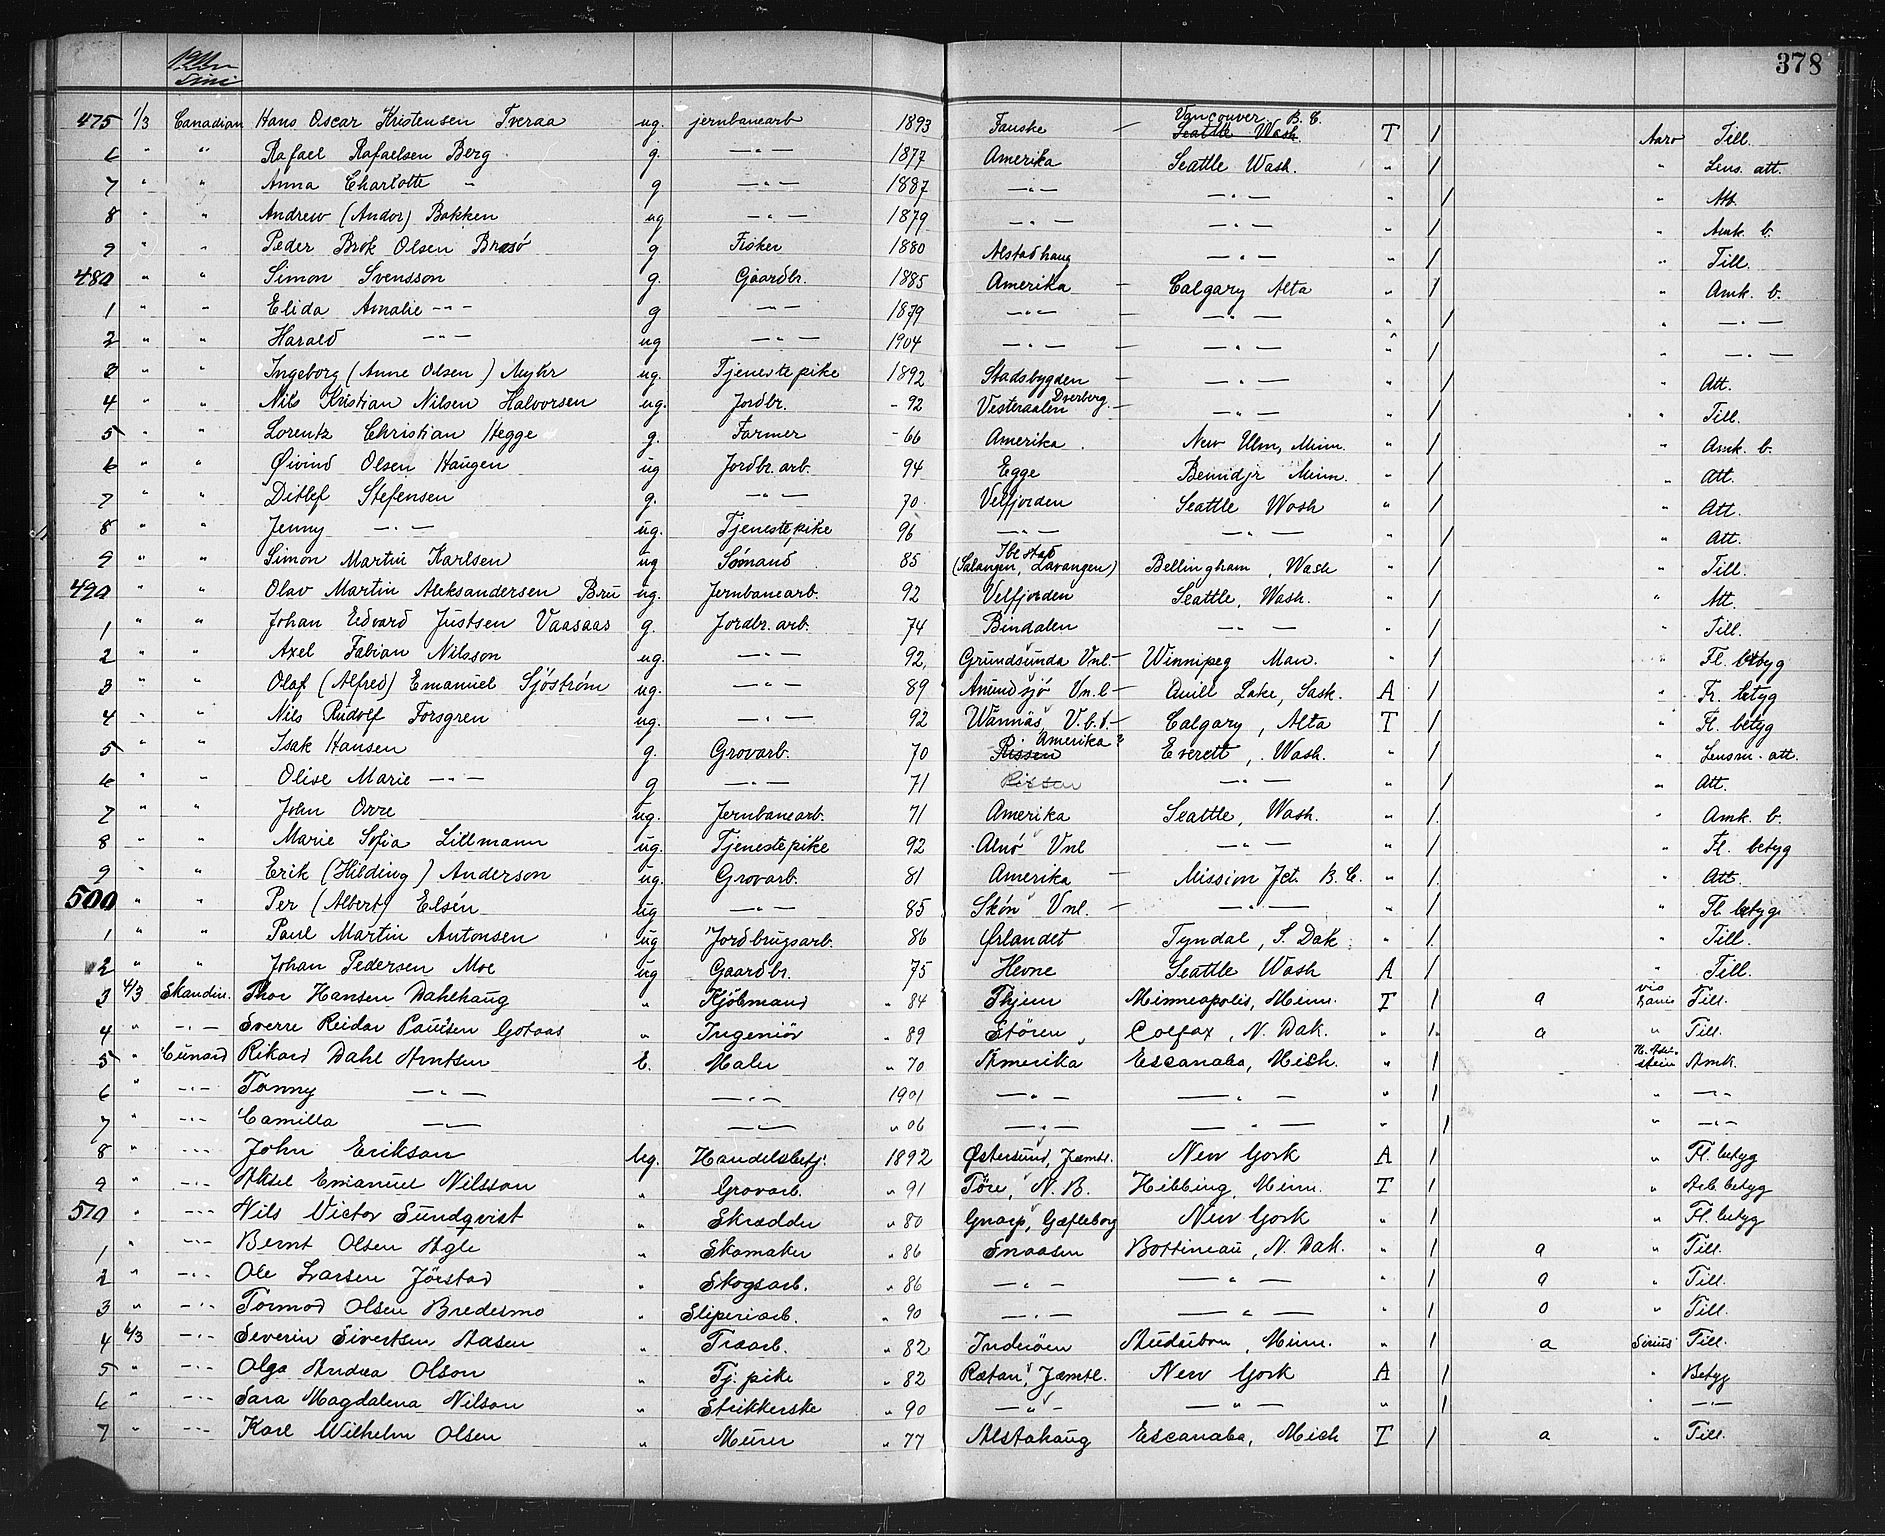 378
475 1/3 Canadian Hans Oscar Kristensen Tveraa ug. jernbanearb 1893 Fauske — Vancouver. B. C. Seattle Wash. T / Aaro Till.
6 " " Rafael Rafaelsen Berg g. —"— 1877 Amerika Seattle Wash. " / " Lens. att.
7 " " Anna Charlotte " g —"— 1887 —"— —"— " / " Att.
8 " " Andrew (Andor) Bakken ug —"— 1879 —"— —"— " / " Amk. b.
9 " " Peder Brok Olsen Brasö g Fisker 1880 Alstadhaug —"— " / " Till.
480 " " Simon Svensson g. Gaardbr. 1885 Amerika — Calgary Alta " / " Amk. b.
1 " " Elida Amalie —"— g —"— 1879 —"— — —"— " / " —"—
2 " " Harald —"— ug —"— 1904 —"— — —"— " / " —"—
3 " " Ingeborg (Anne Olsen) Myhr ug. Tjenestepike 1892 Stadsbygden — —"— " / " Att.
4 " " Nils Kristian Nilsen Halvorsen ug. Jordbr. - 92 Vesteraalen Dverberg. — —"— " / " Till.
5 " " Lorentz Christian Hegge g. Farmer - 66 Amerika. New Ulm, Minn. " / " Amk. b.
6 " " Øivind Olsen Haugen ug Jordbr. arb. 94 Egge Bemidji Minn. " / " Att.
7 " " Ditlef Stefensen g. —"— 70 Velfjorden Seattle Wash " / " Att.
8 " " Jenny —"— ug. Tjenestepike 96 —"— —"— " / " Att.
9 " " Simon Martin Karlsen ug Sømand 85 Ibestad (Salangen, Lavangen) Bellingham, Wash " / " Till.
490 " " Olav Martin Aleksandersen Bru ug. Jernbanearb. 92 Velfjorden Seattle, Wash. " / " Att.
1 " " Johan Edvard Justsen Vaasaas g. Jordbr. arb. 74 Bindalen —"— " / " Till.
2 " " Axel Fabian Nilsson ug. —"— 92, Grundsunda Vnl. — Winnipeg Man. " / " Fl. betyg
3 " " Olaf (Alfred) Emanuel Sjöström ug. —"— 89 Anundsjö Vn. l — Quill Lake, Sask. A / " Fr. betyg
4 " " Nils Rudolf Forsgren ug. —"— 92 Wännäs V. b. l. — Calgary, Alta T / " Fl. betyg
5 " " Isak Hansen g. Grovarb. 70 Rissen Amerika? Everett, Wash. " / " Lensm. att.
6 " " Olise Marie —"— g —"— 71 Rissen —"— " / " Att.
7 " " John Orre ug. Jernbanearb. 71 Amerika Seattle, Wash. " / " Amk. b.
8 " " Marie Sofia Lillmann ug. Tjenestepike 92 Alnö Vnl —"— " / " Fl. betyg
9 " " Erik (Hilding) Anderson ug. Grovarb. 81 Amerika — Mission Jct. B. C. " / " Att.
500 " " Per (Albert) Elsén ug —"— 85 Skön Vnl. — —"— " / " Fl. betyg
1 " " Paul Martin Antonsen ug Jordbrugsarb. 86 Ørlandet Tyndal, S. Dak. " / " Till.
2 " " Johan Pedersen Moe ug Gaardbr. 75 Hevne Seattle Wash A / " Till.
3 4/3 Skandin. Thor Hansen Dahlhaug " Kjöbmand " 84 Thjem Minneapolis, Minn. T / a via Till.
4 " —"— Sverre Reidar Paulsen Gotaas " Ingeniör " 89 Stören Colfax, N. Dak. " / a " Till.
5 " Cunard Rikard Dahl Arntsen E. Maler " 70 Amerika Escanaba, Mich. " / Amk.
6 " —"— Tonny —"— —"— 1901 —"— —"— " / " —"—
7 " —"— Camilla —"— —"— " 06 —"— —"— " / " —"—
8 " —"— John Erikson Ug. Handelsbetj. 1892 Østersund, Jæmtl. New York A / " Fl. betyg
9 " —"— Aksel Emanuel Nilsson " Grovarb. " 91 Töre, N. B. Hibbing, Minn. T / " Arb. betyg
510 " —"— Nils Victor Sundqvist " Skrædder " 80 Gnarp, Gæfleborg New York " / " Fl. betyg
1 " —"— Bernt Olsen Agle " Skomaker " 86 Snaasen Bottineau, N. Dak. " / a " Till.
2 " —"— Ole Larsen Jörstad " Skogsarb. " 86 —"— —"— " / a " Till.
3 " —"— Tormod Olsen Bredesmo " Sliperiarb. " 90 —"— —"— " / o " Till.
4 6/3 —"— Severin Sivertsen Aasen " Traarb. " 82 Inderöen Audubon, Minn. " / a Sirius Till.
5 " —"— Olga Andrea Olson " Tj. pike " 82 Rætan, Jæmtl. New York A / " Betyg
6 " —"— Sara Magdalena Nilson " Strikkerske " 90 —"— —"— " / " —"—
7 " —"— Karl Wilhelm Olsen " Murer " 77 Alstahaug Escanaba, Mich T / a " Till.